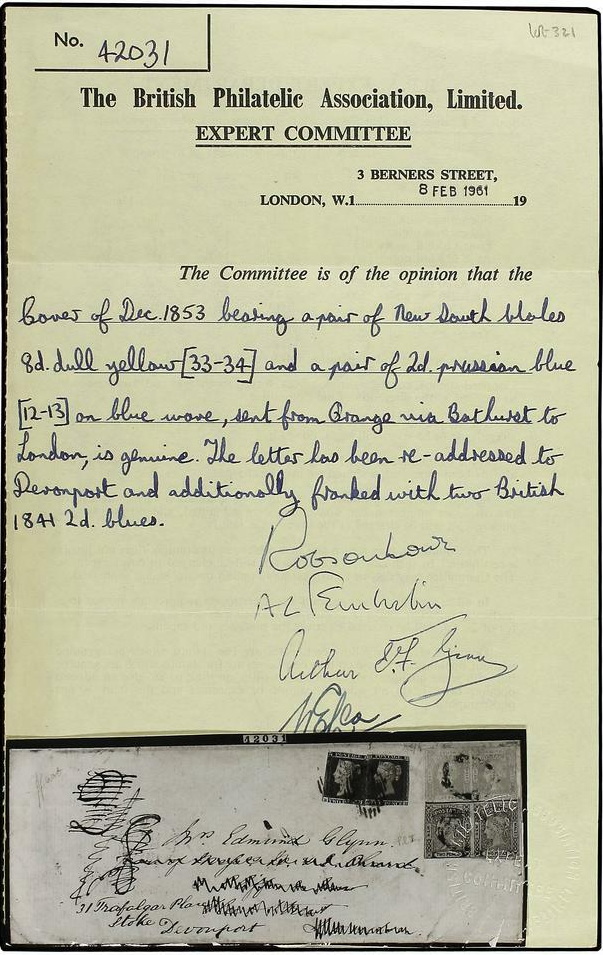 No. 42031
The British Philatelic Association, Limited.
EXPERT COMMITTEE
3 BERNERS STREET,
LONDON, W.1 8 FEB 1961 19
The Committee is of the opinion that the
Cover of Dec. 1853 bearing a pair of New South Wales
8d. dull yellow [33-34] and a pair of 2d. prussian blue
[12-13] on blue wove, sent from Orange via Bathurst to
London, is genuine. The letter has been re-addressed to
Devonport and additionally franked with two British
1841 2d. blues.
Robson Lowe
Arthur
42031
Mrs Edmund Glynn
31 Trafalgar Place
Stoke
Devonport